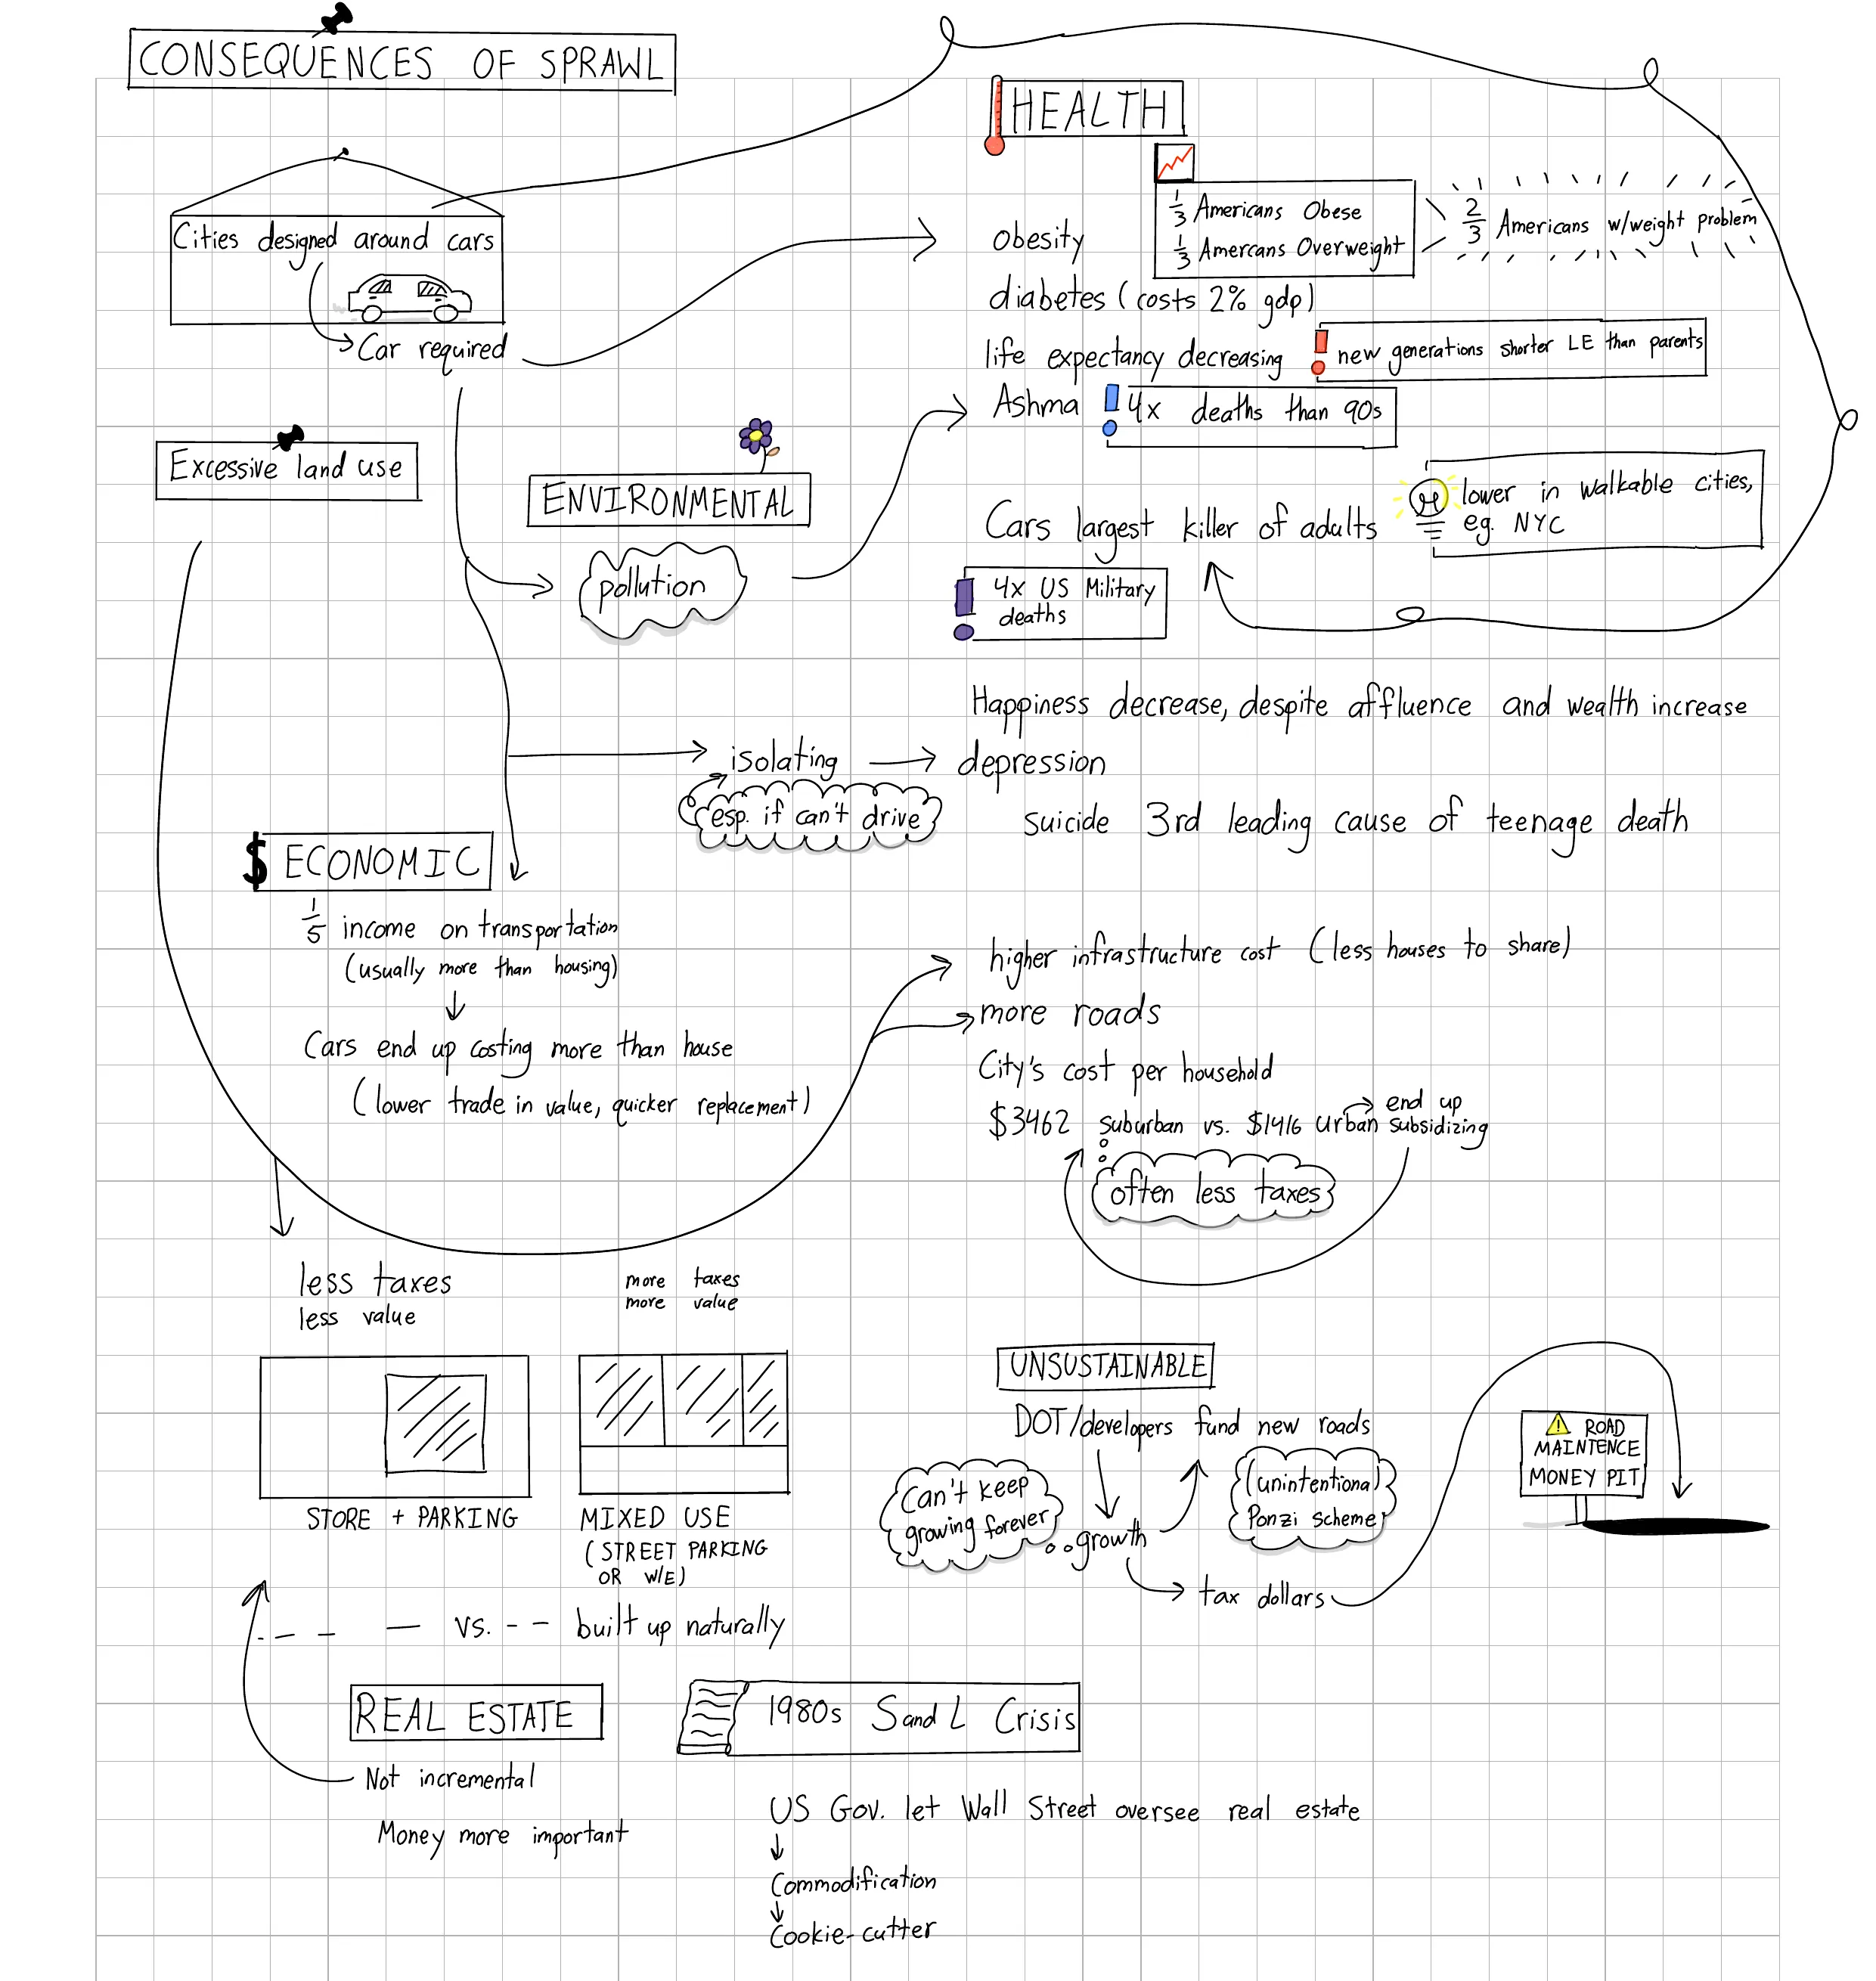 CONSEQUENCES OF SPRAWL
Cities designed around cars
Car required
Excessive land use
ENVIRONMENTAL
pollution
HEALTH
1/3 Americans Obese
1/3 Amercans Overweight
2/3 Americans w/weight problem
Obesity
diabetes (costs 2% gdp)
life expectancy decreasing
new generations shorter LE than parents
Ashma
4x deaths than 90s
Cars largest killer of adults
lower in walkable cities,
eg. NYC
4x US Military
deaths
Happiness decrease, despite affluence and wealth increase
isolating
depression
esp. if can't drive
suicide 3rd leading cause of teenage death
$ ECONOMIC
1/5 income on transportation
(usually more than housing)
Cars end up costing more than house
(lower trade in value, quicker replacement)
higher infrastructure cost (less houses to share)
more roads
City's cost per household
$3462 suburban vs. $1416 urban
end up
subsidizing
often less taxes
less taxes
less value
more taxes
more value
STORE + PARKING
MIXED USE
(STREET PARKING
OR W/E)
vs.
built up naturally
UNSUSTAINABLE
DOT/developers fund new roads
Can't keep
growing forever
growth
(unintentional)
Ponzi scheme
tax dollars
ROAD
MAINTENCE
MONEY PIT
REAL ESTATE
Not incremental
Money more important
1980s S and L Crisis
US Gov. let Wall Street oversee real estate
Commodification
Cookie-cutter